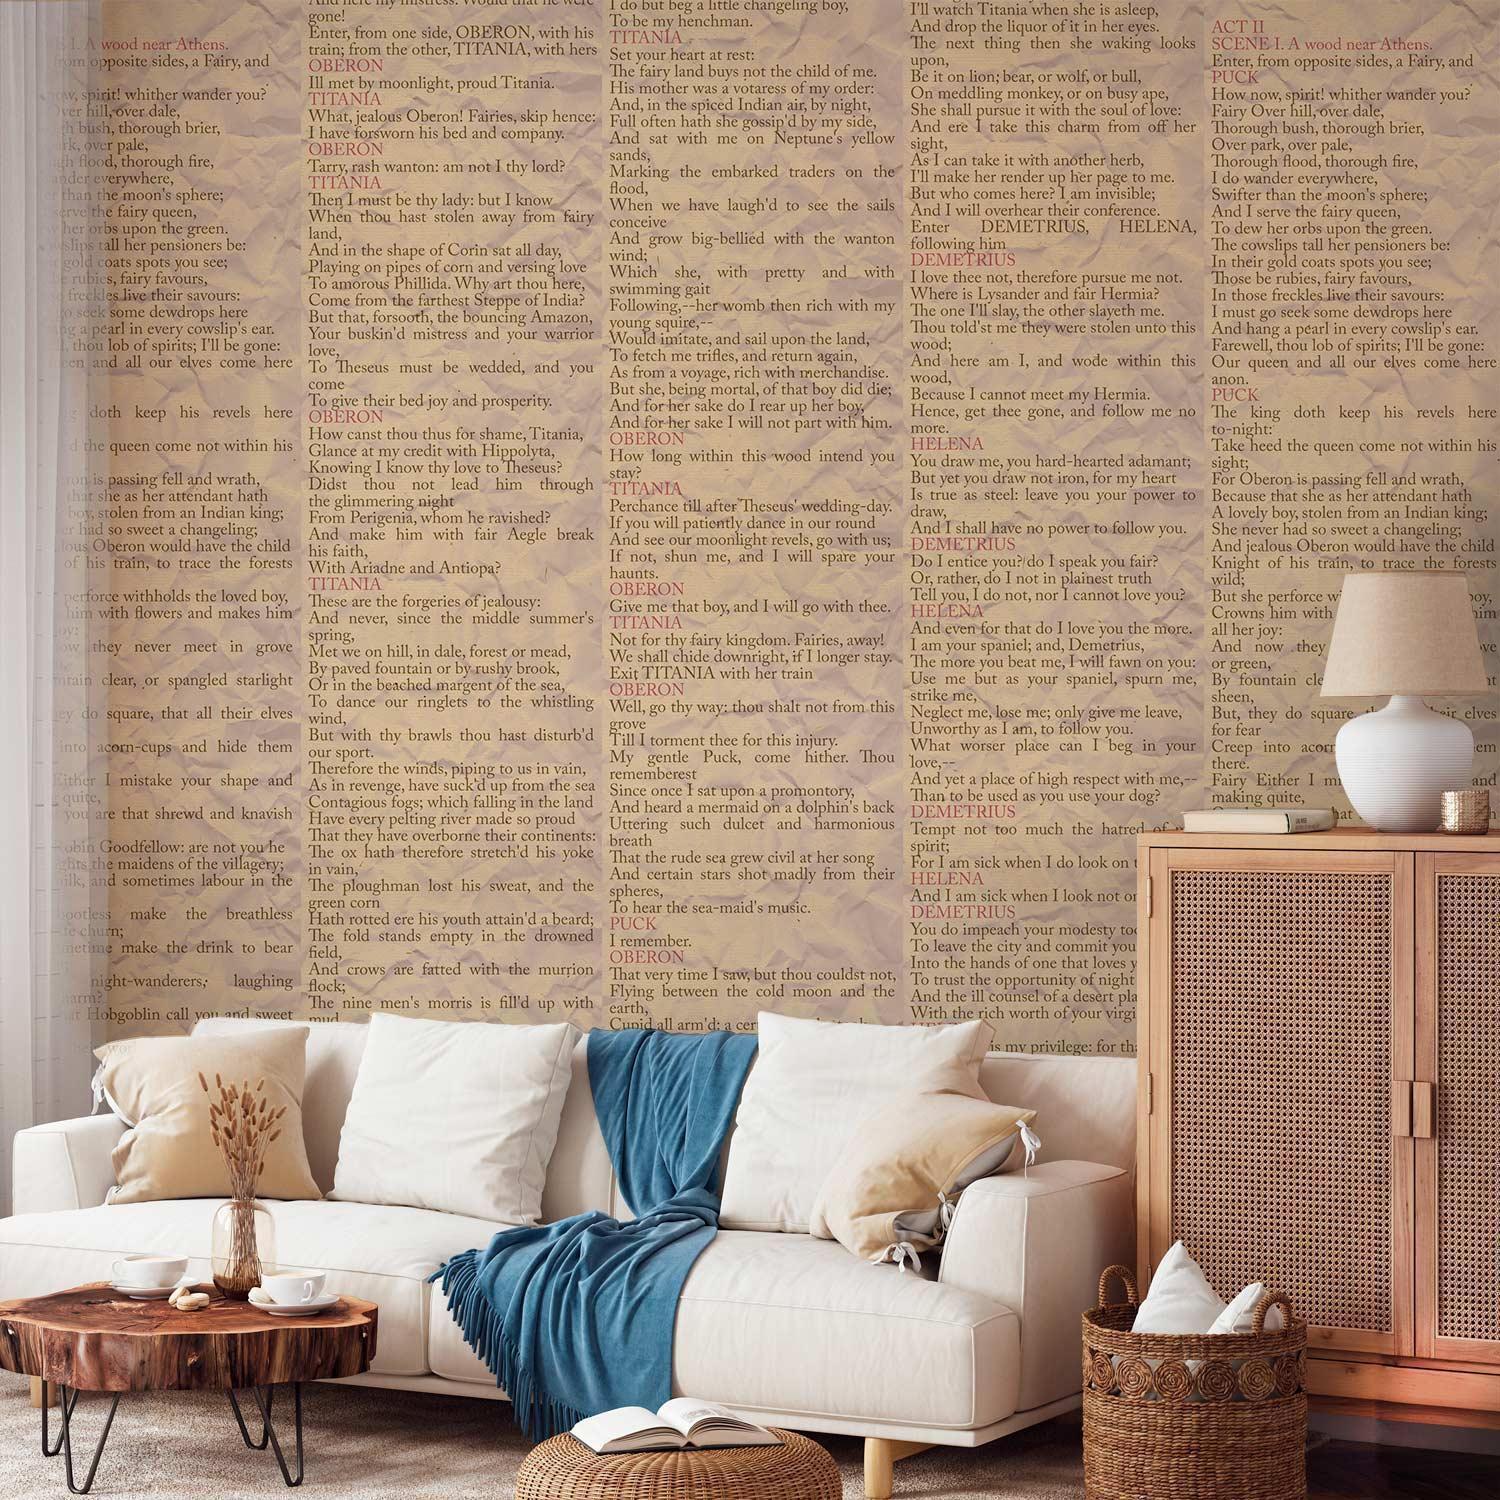 S I. A wood near Athens.
from opposite sides, a Fairy, and
spirit! whither wander you?
hill, over dale,
bush, thorough brier,
over pale,
flood, thorough fire,
everywhere,
than the moon's sphere;
serve the fairy queen,
her orbs upon the green.
tall her pensioners be:
gold coats spots you see;
rubies, fairy favours,
freckles live their savours:
seek some dewdrops here
a pearl in every cowslip's ear.
thou lob of spirits; I'll be gone:
and all our elves come here
doth keep his revels here
the queen come not within his
is passing fell and wrath,
that she as her attendant hath
boy, stolen from an Indian king;
had so sweet a changeling;
Oberon would have the child
of his train, to trace the forests
perforce withholds the loved boy,
him with flowers and makes him
they never meet in grove
clear, or spangled starlight
do square, that all their elves
into acorn-cups and hide them
Either I mistake your shape and
quite,
you are that shrewd and knavish
Goodfellow: are not you he
the maidens of the villagery;
and sometimes labour in the
bootless make the breathless
churn;
make the drink to bear
night-wanderers, laughing
Hobgoblin call you and sweet
And here my mistress. Would that he were
gone!
Enter, from one side, OBERON, with his
train; from the other, TITANIA, with hers
OBERON
Ill met by moonlight, proud Titania.
TITANIA
What, jealous Oberon! Fairies, skip hence:
I have forsworn his bed and company.
OBERON
Tarry, rash wanton: am not I thy lord?
TITANIA
Then I must be thy lady: but I know
When thou hast stolen away from fairy
land,
And in the shape of Corin sat all day,
Playing on pipes of corn and versing love
To amorous Phillida. Why art thou here,
Come from the farthest Steppe of India?
But that, forsooth, the bouncing Amazon,
Your buskin'd mistress and your warrior
love,
To Theseus must be wedded, and you
come
To give their bed joy and prosperity.
OBERON
How canst thou thus for shame, Titania,
Glance at my credit with Hippolyta,
Knowing I know thy love to Theseus?
Didst thou not lead him through
the glimmering night
From Perigenia, whom he ravished?
And make him with fair Aegle break
his faith,
With Ariadne and Antiopa?
TITANIA
These are the forgeries of jealousy:
And never, since the middle summer's
spring,
Met we on hill, in dale, forest or mead,
By paved fountain or by rushy brook,
Or in the beached margent of the sea,
To dance our ringlets to the whistling
wind,
But with thy brawls thou hast disturb'd
our sport.
Therefore the winds, piping to us in vain,
As in revenge, have suck'd up from the sea
Contagious fogs; which falling in the land
Have every pelting river made so proud
That they have overborne their continents:
The ox hath therefore stretch'd his yoke
in vain,
The ploughman lost his sweat, and the
green corn
Hath rotted ere his youth attain'd a beard;
The fold stands empty in the drowned
field,
And crows are fatted with the murrion
flock;
The nine men's morris is fill'd up with
mud,
I do but beg a little changeling boy,
To be my henchman.
TITANIA
Set your heart at rest:
The fairy land buys not the child of me.
His mother was a votaress of my order:
And, in the spiced Indian air, by night,
Full often hath she gossip'd by my side,
And sat with me on Neptune's yellow
sands,
Marking the embarked traders on the
flood,
When we have laugh'd to see the sails
conceive
And grow big-bellied with the wanton
wind;
Which she, with pretty and with
swimming gait
Following,--her womb then rich with my
young squire,--
Would imitate, and sail upon the land,
To fetch me trifles, and return again,
As from a voyage, rich with merchandise.
But she, being mortal, of that boy did die;
And for her sake do I rear up her boy,
And for her sake I will not part with him.
OBERON
How long within this wood intend you
stay?
TITANIA
Perchance till after Theseus' wedding-day.
If you will patiently dance in our round
And see our moonlight revels, go with us;
If not, shun me, and I will spare your
haunts.
OBERON
Give me that boy, and I will go with thee.
TITANIA
Not for thy fairy kingdom. Fairies, away!
We shall chide downright, if I longer stay.
Exit TITANIA with her train
OBERON
Well, go thy way: thou shalt not from this
grove
Till I torment thee for this injury.
My gentle Puck, come hither. Thou
rememberest
Since once I sat upon a promontory,
And heard a mermaid on a dolphin's back
Uttering such dulcet and harmonious
breath
That the rude sea grew civil at her song
And certain stars shot madly from their
spheres,
To hear the sea-maid's music.
PUCK
I remember.
OBERON
That very time I saw, but thou couldst not,
Flying between the cold moon and the
earth,
Cupid all arm'd: a cer
I'll watch Titania when she is asleep,
And drop the liquor of it in her eyes.
The next thing then she waking looks
upon,
Be it on lion, bear, or wolf, or bull,
On meddling monkey, or on busy ape,
She shall pursue it with the soul of love:
And ere I take this charm from off her
sight,
As I can take it with another herb,
I'll make her render up her page to me.
But who comes here? I am invisible;
And I will overhear their conference.
Enter DEMETRIUS, HELENA,
following him
DEMETRIUS
I love thee not, therefore pursue me not.
Where is Lysander and fair Hermia?
The one I'll slay, the other slayeth me.
Thou told'st me they were stolen unto this
wood;
And here am I, and wode within this
wood,
Because I cannot meet my Hermia.
Hence, get thee gone, and follow me no
more.
HELENA
You draw me, you hard-hearted adamant;
But yet you draw not iron, for my heart
Is true as steel: leave you your power to
draw,
And I shall have no power to follow you.
DEMETRIUS
Do I entice you? do I speak you fair?
Or, rather, do I not in plainest truth
Tell you, I do not, nor I cannot love you?
HELENA
And even for that do I love you the more.
I am your spaniel; and, Demetrius,
The more you beat me, I will fawn on you:
Use me but as your spaniel, spurn me,
strike me,
Neglect me, lose me; only give me leave,
Unworthy as I am, to follow you.
What worser place can I beg in your
love,--
And yet a place of high respect with me,--
Than to be used as you use your dog?
DEMETRIUS
Tempt not too much the hatred of
spirit;
For I am sick when I do look on t
HELENA
And I am sick when I look not on
DEMETRIUS
You do impeach your modesty too
To leave the city and commit you
Into the hands of one that loves y
To trust the opportunity of night
And the ill counsel of a desert pla
With the rich worth of your virgi
HELENA
is my privilege: for tha
ACT II
SCENE I. A wood near Athens.
Enter, from opposite sides, a Fairy, and
PUCK
How now, spirit! whither wander you?
Fairy Over hill, over dale,
Thorough bush, thorough brier,
Over park, over pale,
Thorough flood, thorough fire,
I do wander everywhere,
Swifter than the moon's sphere;
And I serve the fairy queen,
To dew her orbs upon the green.
The cowslips tall her pensioners be:
In their gold coats spots you see;
Those be rubies, fairy favours,
In those freckles live their savours:
I must go seek some dewdrops here
And hang a pearl in every cowslip's ear.
Farewell, thou lob of spirits; I'll be gone:
Our queen and all our elves come here
anon.
PUCK
The king doth keep his revels here
to-night:
Take heed the queen come not within his
sight;
For Oberon is passing fell and wrath,
Because that she as her attendant hath
A lovely boy, stolen from an Indian king;
She never had so sweet a changeling;
And jealous Oberon would have the child
Knight of his train, to trace the forests
wild;
But she perforce wi boy,
Crowns him with him
all her joy:
And now they
or green,
By fountain cle
sheen,
But, they do square, their elves
for fear
Creep into acorn
there.
Fairy Either I mi and
making quite,